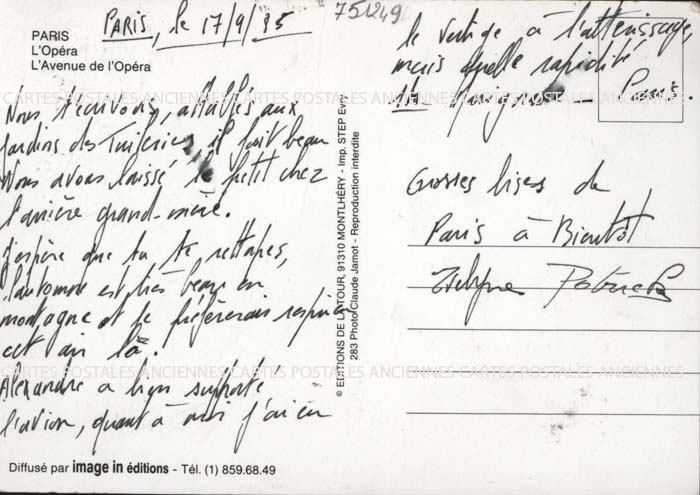 PARIS
L'Opéra
L'Avenue de l'Opéra
PARIS, le 17/9/85
751249
Nous t'écrivons, attablés aux
jardins des Tuileries, il fait beau
Nous avons laissé le petit chez
l'arrière grand-mère.
J'espère que tu te rettapes,
l'automne est très beau en
montagne et je préfèrerais respirer
cet air là.
Alexandre a bien supporté
l'avion, quant à moi j'ai eu
le vertige à l'atterrissage,
mais quelle rapidité
Paris.
Grosses bises de
Paris à Bientôt
© EDITIONS DE LATOUR, 91310 MONTLHÉRY - Imp. STEP Evry
283 Photo Claude Jamot - Reproduction interdite
CARTES POSTALES ANCIENNES CARTES POSTALES ANCIENNES CARTES POSTALES ANCIENNES
CARTES POSTALES ANCIENNES CARTES POSTALES ANCIENNES CARTES POSTALES ANCIENNES
Diffusé par image in éditions - Tél. (1) 859.68.49